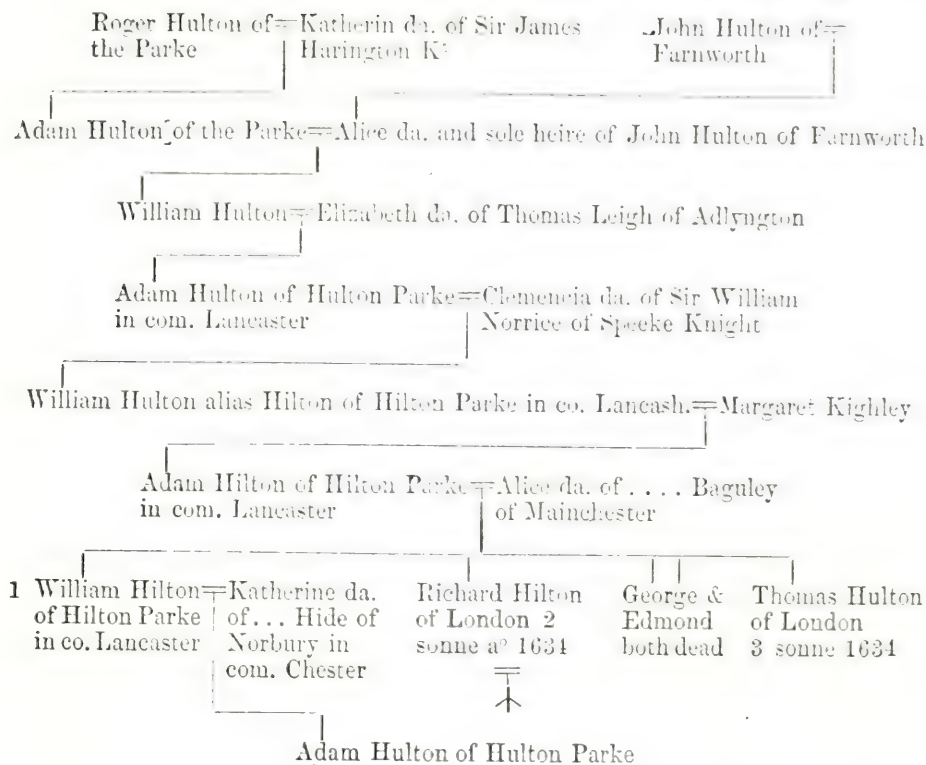 Roger Hulton of = Katherin da. of Sir James
the Parke Harington Kt
John Hulton of =
Farnworth
Adam Hulton of the Parke = Alice da. and sole heire of John Hulton of Farnworth
William Hulton = Elizabeth da. of Thomas Leigh of Adlyngton
Adam Hulton of Hulton Parke = Clemencia da. of Sir William
in com. Lancaster Norrice of Speeke Knight
William Hulton alias Hilton of Hilton Parke in co. Lancash. = Margaret Kighley
Adam Hilton of Hilton Parke = Alice da. of .... Baguley
in com. Lancaster of Mainchester
1 William Hilton =
of Hilton Parke
in co. Lancaster
Katherine da.
of ... Hide of
Norbury in
com. Chester
Richard Hilton
of London 2
sonne a° 1634
George &
Edmond
both dead
Thomas Hulton
of London
3 sonne 1634
Adam Hulton of Hulton Parke